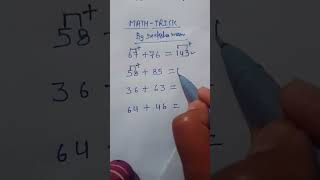 MATH-TRICK
By
67 + 76 = 143
58 + 85 =
36 + 63 =
64 + 46 =